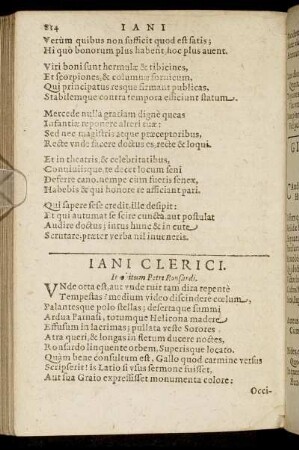 814 IANI
Verùm quibus non sufficit quod est satis;
Hi quò bonorum plus habent, hoc plus auent.
Viri boni sunt hermulæ & tibicines,
Et scorpiones, & columnæ fornicum,
Qui principatus resque firmant publicas,
Stabilemque contra tempora efficiunt statum.
Mercede nulla gratiam dignè queas
Infantiæ reponere alteri tuæ:
Sed nec magistris æque præceptoribus,
Recte vnde facere doctus es, recte & loqui.
Et in theatris, & celebritatibus,
Conuiuiisque, te decet locum seni
Deferre cano, nempe cùm fueris senex,
Habebis & qui honore te afficiant pari.
Qui sapere sese credit, ille desipit:
Et qui autumat se scire cuncta, aut postulat
Audire doctus; intus hunc & in cute
Scrutare, præter verba nil inueneris.
IANI CLERICI.
In obitum Petri Ronsardi.
VNde orta est, aut vnde ruit tam dira repentè
Tempestas? medium video discindere cœlum,
Palantesque polo stellas; desertaque summi
Ardua Parnasi, totumque Helicona madere
Effusum in lacrimas; pullata veste Sorores
Atra queri, & longas in fletum ducere noctes,
Ronsardo linquente orbem, Superisque locato.
Quàm benè consultum est, Gallo quod carmine versus
Scripserit! is Latio si vsus sermone fuisset,
Aut sua Graio expressisset monumenta colore:
Occi-